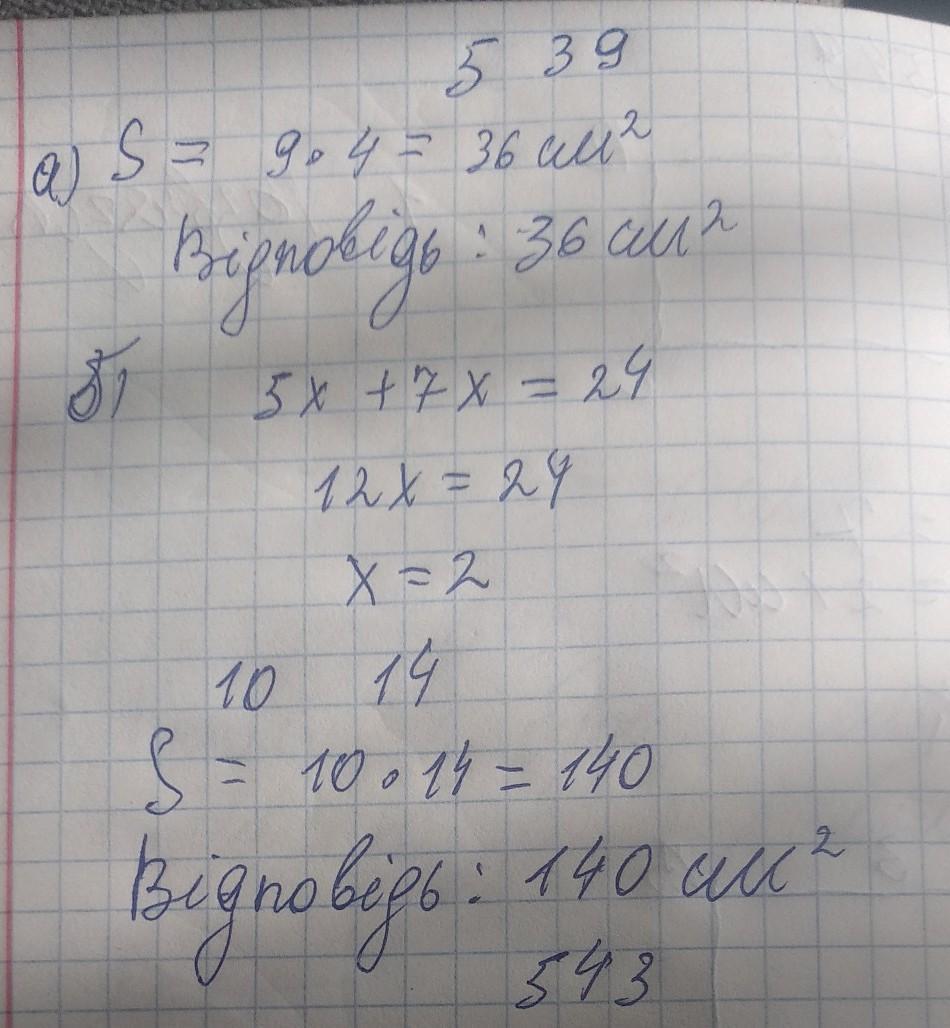 5 39
а) S = 9 · 4 = 36 см²
Відповідь : 36 см²
б) 5x + 7x = 24
12x = 24
x = 2
10 14
S = 10 · 14 = 140
Відповідь : 140 см²
543